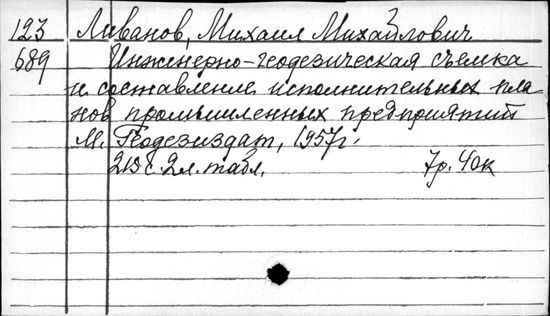 123 Ливанов, Михаил Михайлович
689 Инженерно-геодезическая съемка
и составление исполнительных пла
нов промышленных предприятий
М. Геодезиздат, 1957г.
с. 2л. табл. 7р. 40к